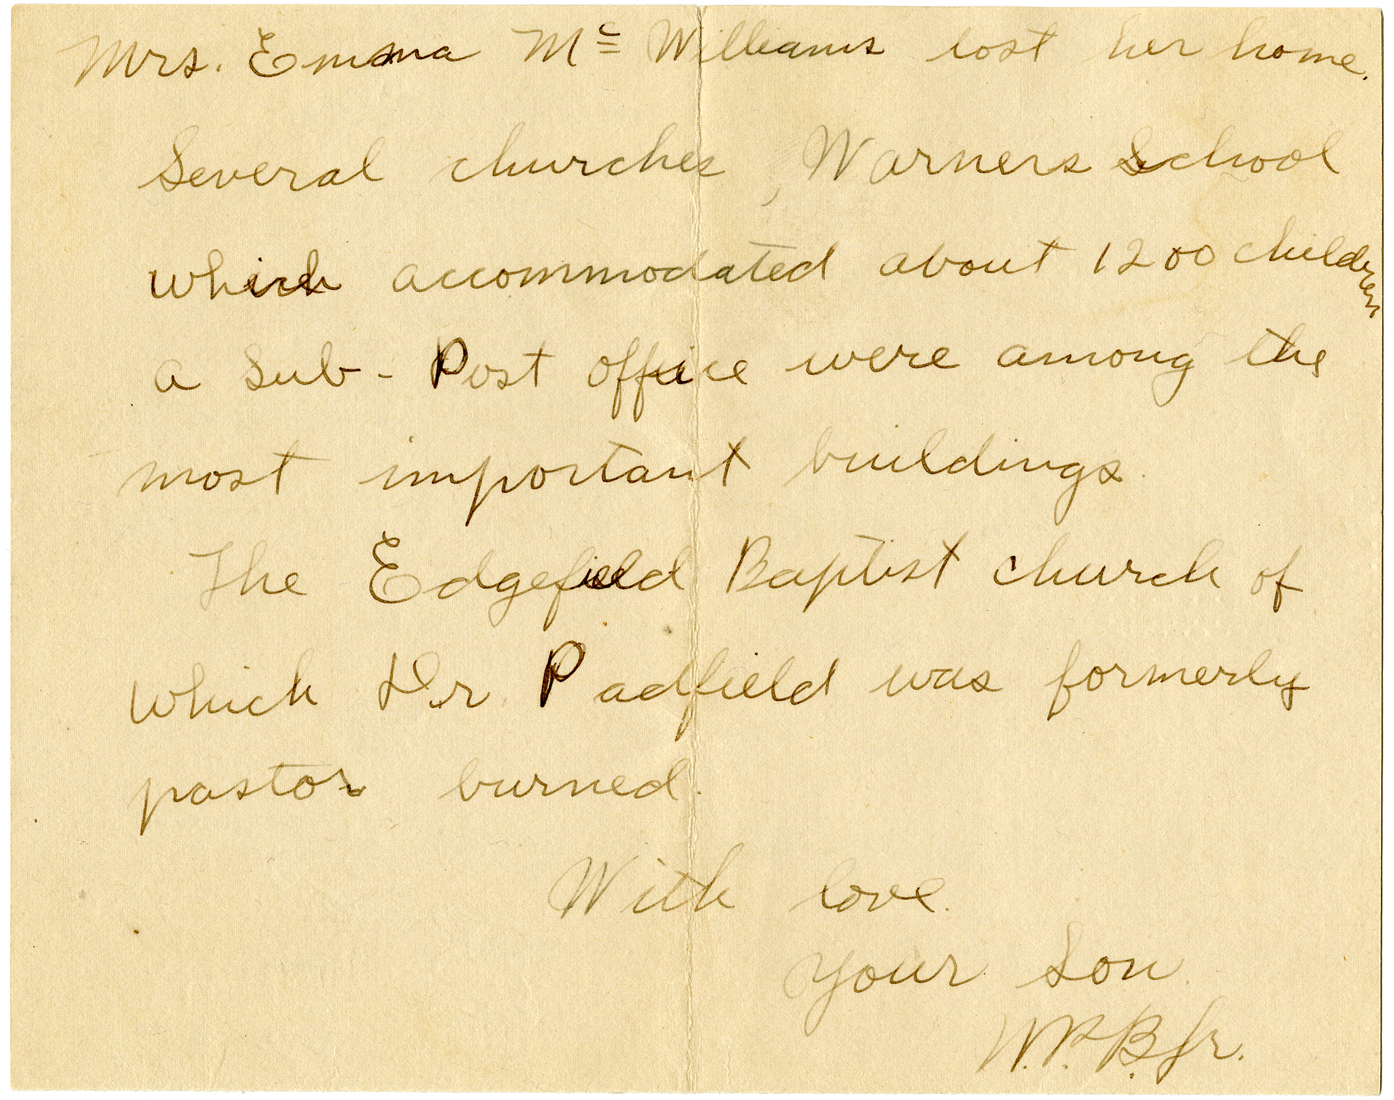 Mrs. Emma Mc Williams lost her home.
Several churches, Warners School
which accommodated about 1200 children
a Sub-Post office were among the
most important buildings.
The Edgefield Baptist church of
which Dr. Padfield was formerly
pastor burned.
With love.
Your Son.
W.P.B. Jr.